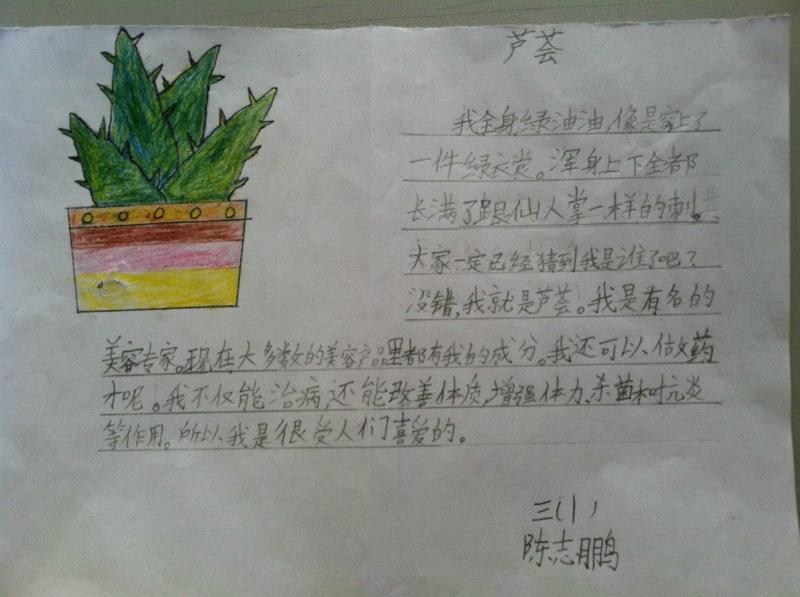 芦荟
我全身绿油油,像是穿上了
一件绿衣裳。浑身上下全都
长满了跟仙人掌一样的刺。
大家一定已经猜到我是谁了吧?
没错,我就是芦荟。我是有名的
美容专家。现在大多数的美容产品里都有我的成分。我还可以做药
材呢!我不仅能治病,还能改善体质,增强体力、杀菌和抗炎
等作用。所以我是很受人们喜爱的。
三(1)
陈志鹏